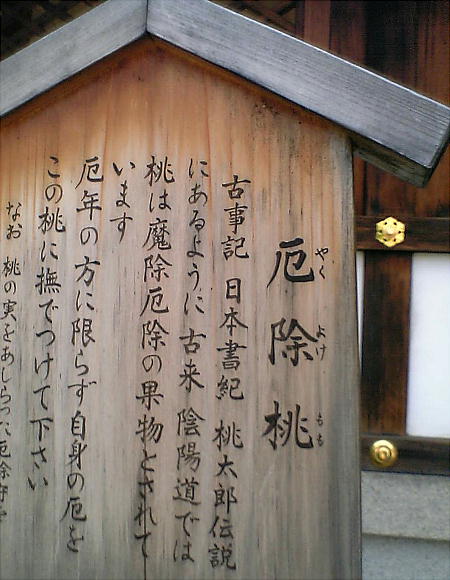 厄除桃
やく よけ もも
古事記 日本書紀 桃太郎伝説
にあるように 古来 陰陽道では
桃は魔除厄除の果物とされて
います
厄年の方に限らず自身の厄を
この桃に撫でつけて下さい
なお 桃の実をあしらった厄除守を